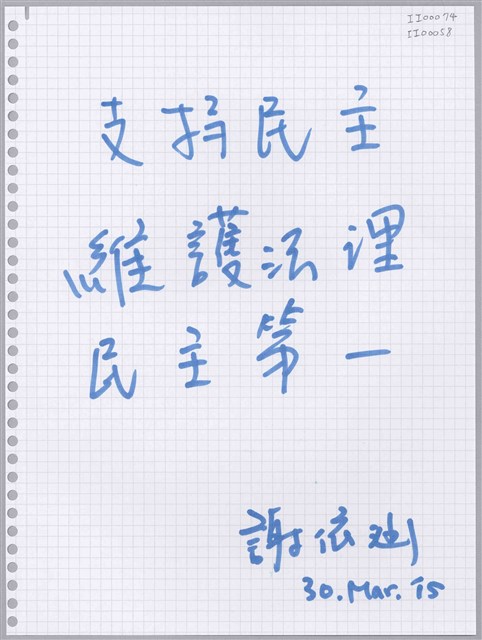 II00074
II00058
支持民主
維護法理
民主第一
謝依
30.Mar.15